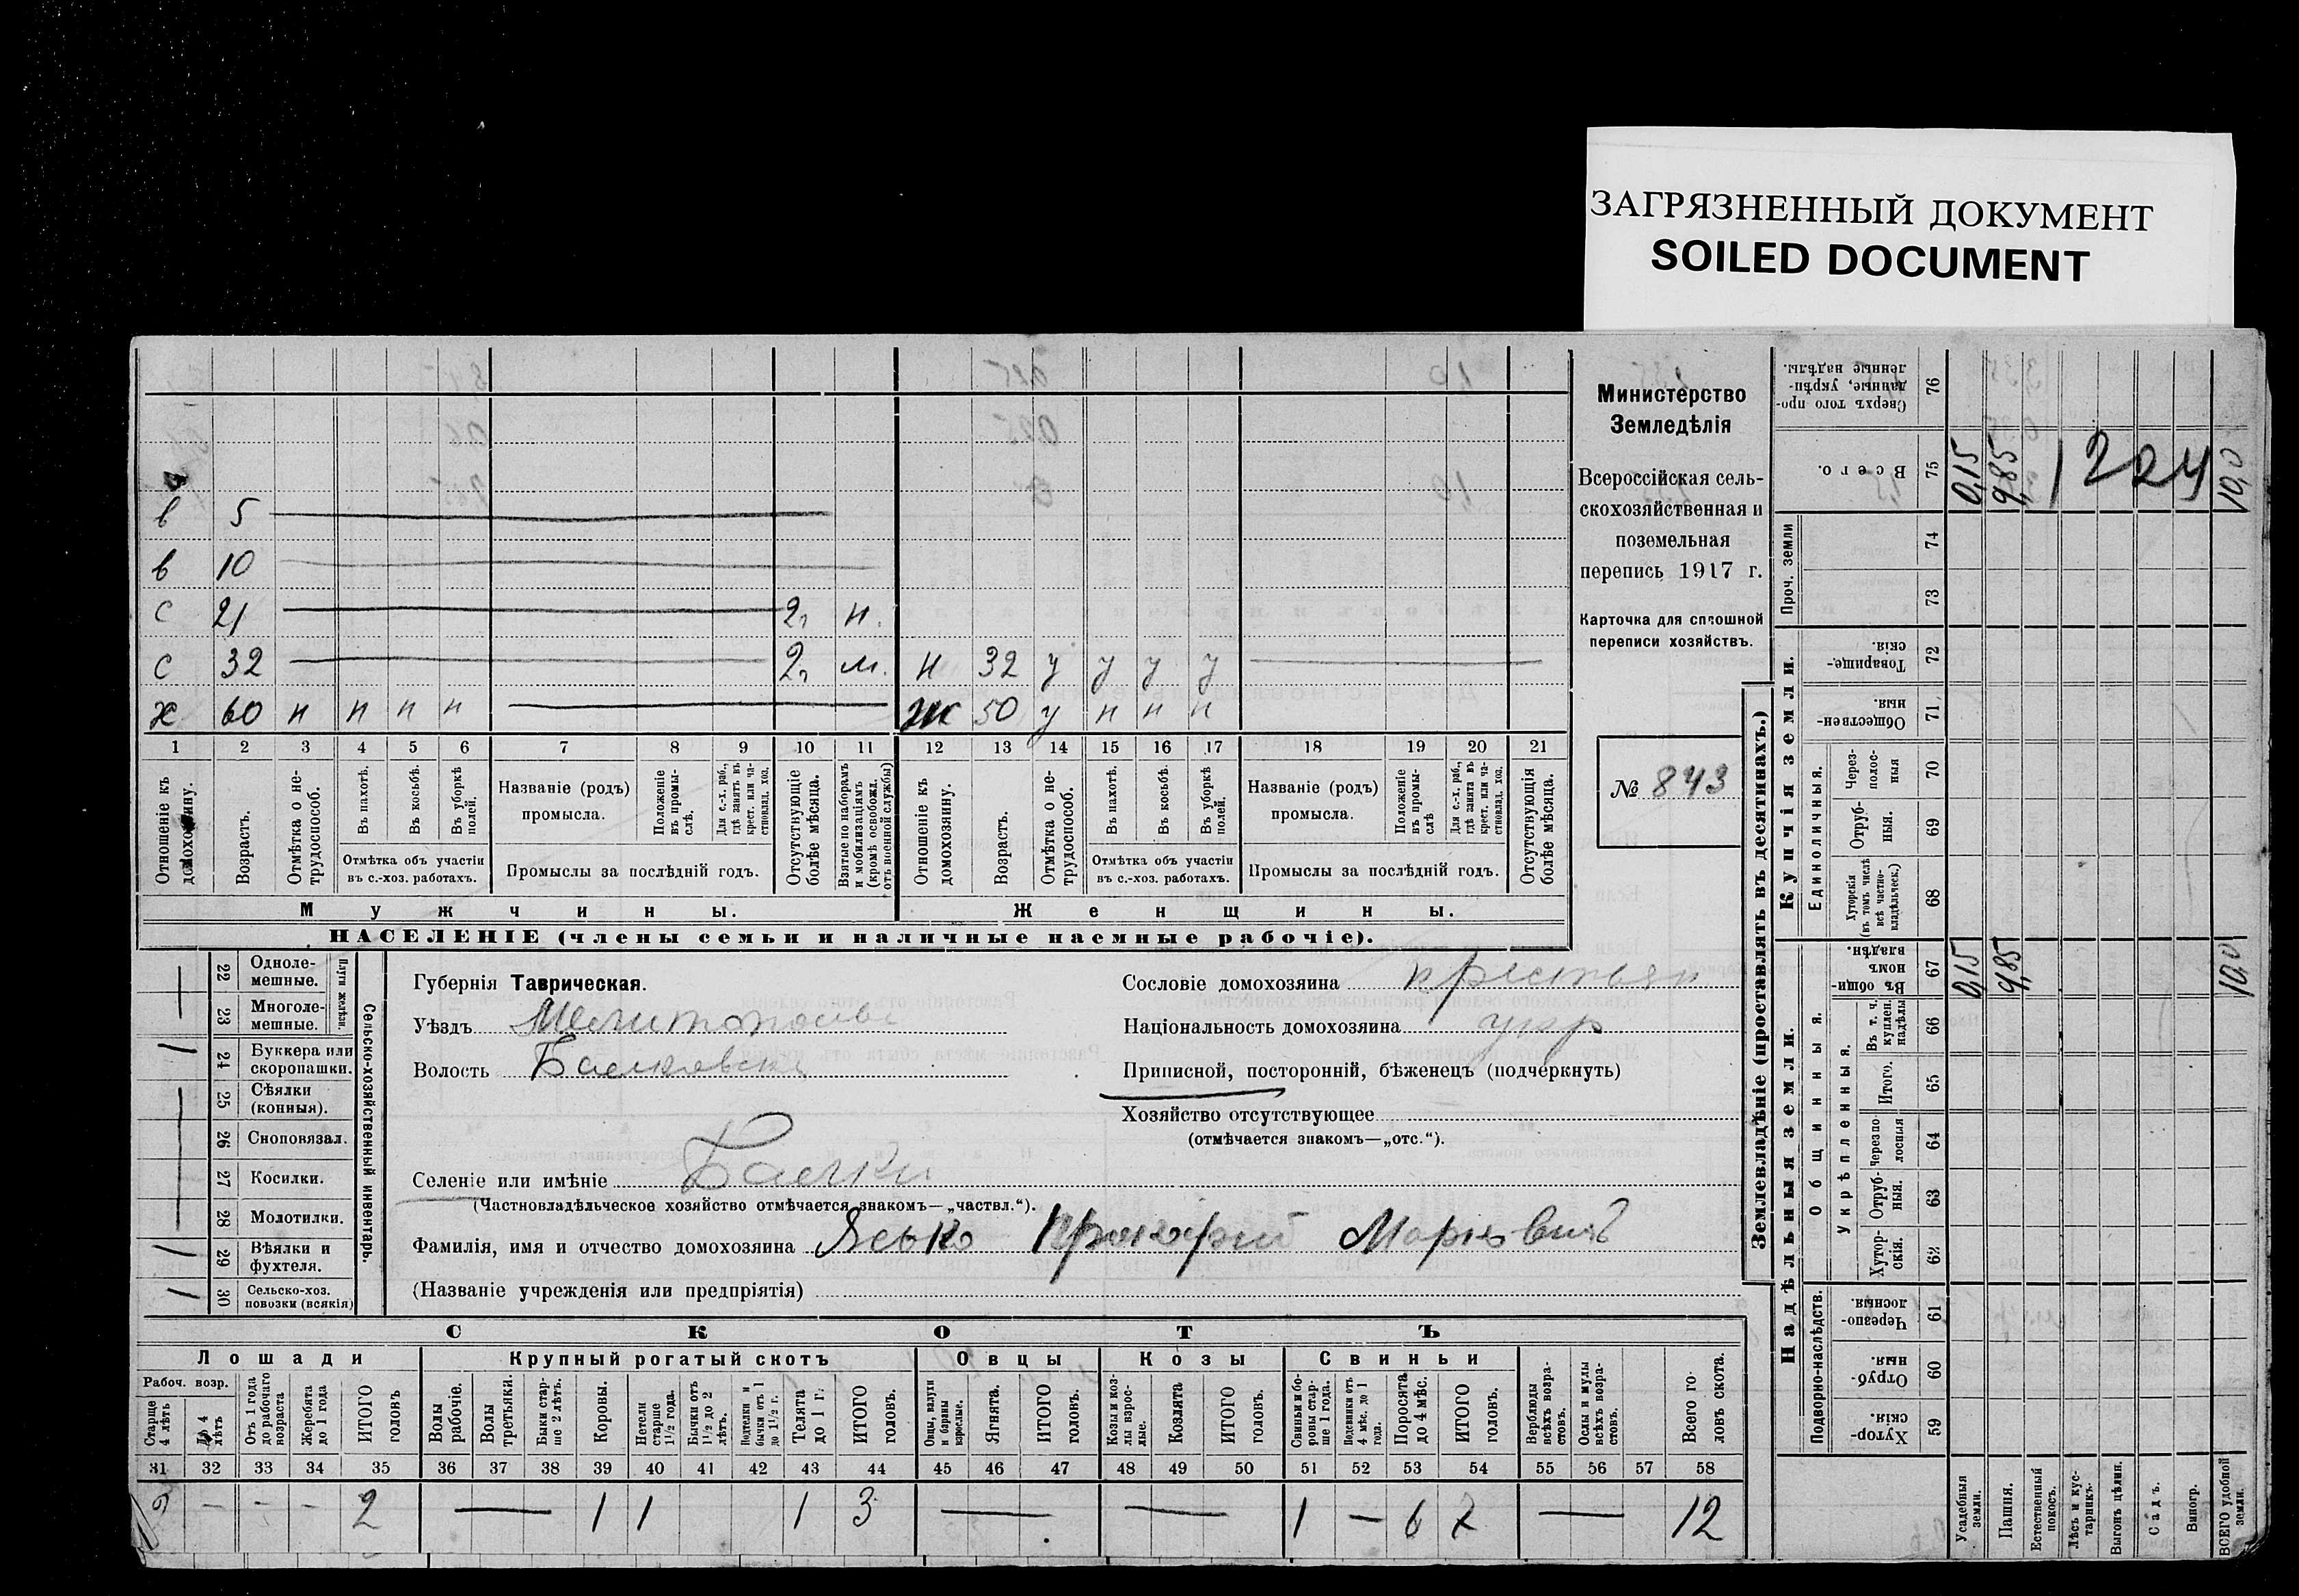 ЗАГРЯЗНЕННЫЙ ДОКУМЕНТ
SOILED DOCUMENT
в 5
в 10
с 21 2г. н.
с 32 2г. м. н 32 у у у у
х 60 н н н н ж 50 у н н н
1 2 3 4 5 6 7 8 9 10 11 12 13 14 15 16 17 18 19 20 21
Отношеніе къ домохозяину.
Возрастъ.
Отмѣтка о не-трудоспособ.
Въ пахотѣ.
Въ косьбѣ.
Въ уборкѣ полей.
Отмѣтка объ участіи въ с.-хоз. работахъ.
Названіе (родъ) промысла.
Положеніе въ промы-слѣ.
Для с.-х. раб., гдѣ занятъ въ крест. или ча-стновлад. хоз.
Промыслы за послѣдній годъ.
Отсутствующіе болѣе мѣсяца.
Взятые по наборамъ и мобилизаціямъ (кромѣ освобожд. отъ военной службы)
Отношеніе къ домохозяину.
Возрастъ.
Отмѣтка о не-трудоспособ.
Въ пахотѣ.
Въ косьбѣ.
Въ уборкѣ полей.
Отмѣтка объ участіи въ с.-хоз. работахъ.
Названіе (родъ) промысла.
Положеніе въ промы-слѣ
Для с.-х. раб., гдѣ занята въ крест. или ча-стновлад. хоз.
Промыслы за послѣдній годъ.
Отсутствующія болѣе мѣсяца.
Мужчины.
Женщины.
НАСЕЛЕНІЕ (члены семьи и наличные наемные рабочіе).
Министерство
Земледѣлія
Всероссійская сель-
скохозяйственная и
поземельная
перепись 1917 г.
Карточка для сплошной
переписи хозяйствъ.
№ 843
22 Одноле-мешные.
23 Многоле-мешные.
Плуги желѣзн.
24 Буккера или скоропашки. 1
25 Сѣялки (конныя).
26 Сноповязал.
27 Косилки.
28 Молотилки.
29 Вѣялки и фухтеля. 1
30 Сельско-хоз. повозки (всякія) 1
Сельско-хозяйственный инвентарь.
Губернія Таврическая.
Уѣздъ Мелитопольс
Волость Балковск
Селеніе или имѣніе Балки
(Частновладѣльческое хозяйство отмѣчается знакомъ—„частвл.“).
Фамилія, имя и отчество домохозяина Ясько Прокофий Маркович
(Названіе учрежденія или предпріятія)
Сословіе домохозяина крестьян
Національность домохозяина укр
Приписной, посторонній, бѣженецъ (подчеркнуть)
Хозяйство отсутствующее
(отмѣчается знакомъ—„отс.“).
СКОТЪ
Лошади
Крупный рогатый скотъ
Овцы
Козы
Свиньи
Рабоч. возр.
Старше 4 лѣтъ
До 4 лѣтъ
Отъ 1 года до рабочаго возраста
Жеребята до 1 года
ИТОГО головъ
Волы рабочіе.
Волы третьяки.
Быки стар-ше 2 лѣтъ.
Коровы.
Нетели старше 1 1/2 года.
Бычки отъ 1 1/2 до 2 лѣтъ.
Подтелки и бычки отъ 1 до 1 1/2 г.
Телята до 1 г.
ИТОГО головъ.
Овцы, валухи и бараны взрослые.
Ягнята.
ИТОГО головъ.
Козы и коз-лы взрос-лые.
Козлята
ИТОГО головъ.
Свиньи и бо-ровы стар-ше 1 года.
Подсвинки отъ 4 мѣс. до 1 года.
Поросята до 4 мѣс.
ИТОГО головъ.
Верблюды всѣхъ возра-стовъ.
Ослы и мулы всѣхъ возра-стовъ.
Всего го-ловъ скота.
31 32 33 34 35 36 37 38 39 40 41 42 43 44 45 46 47 48 49 50 51 52 53 54 55 56 57 58
2 - - - 2 — 1 1 1 3 — — 1 - 6 7 — 12
Землевладѣніе (проставлять въ десятинахъ.)
Купчія земли.
Надѣльныя земли.
Сверхъ того про-данные, укрѣп-ленные надѣлы. 76
Всего. 75 0,15 9,85 1224 10,0
Проч. земли 74 73
Товарище-скія. 72
Обществен-ныя. 71
Единоличныя.
Через-полос-ныя 70
Отруб-ныя. 69
Хуторскія (въ томъ числѣ всѣ частно-владѣльческ.) 68
Общинныя.
Въ общи-номъ владѣн. 67 0,15 9,85 10,0
Укрѣпленныя.
Въ т. ч. куплен. надѣлы 66
Итого. 65
Черезпо-лосныя 64
Отруб-ныя. 63
Хутор-скія. 62
Подворно-наслѣдств.
Черезпо-лосныя. 61
Отруб-ныя. 60
Хутор-скія. 59
Усадебныя земли.
Пашня.
Естественный покосъ.
Лѣсъ и кус-тарникъ.
Выгонъ цѣлин.
Садъ.
Виногр.
ВСЕГО удобной земли.